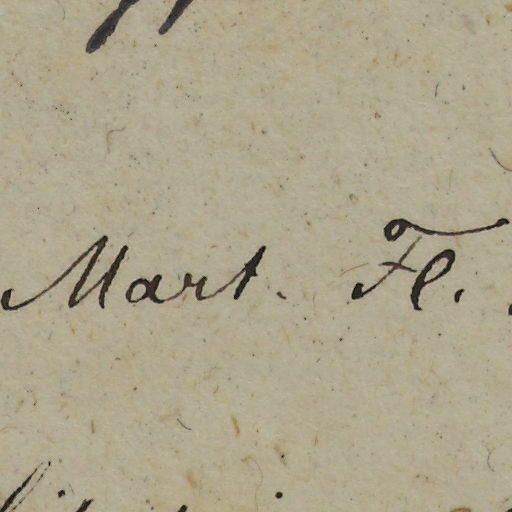 Mart. Fl.